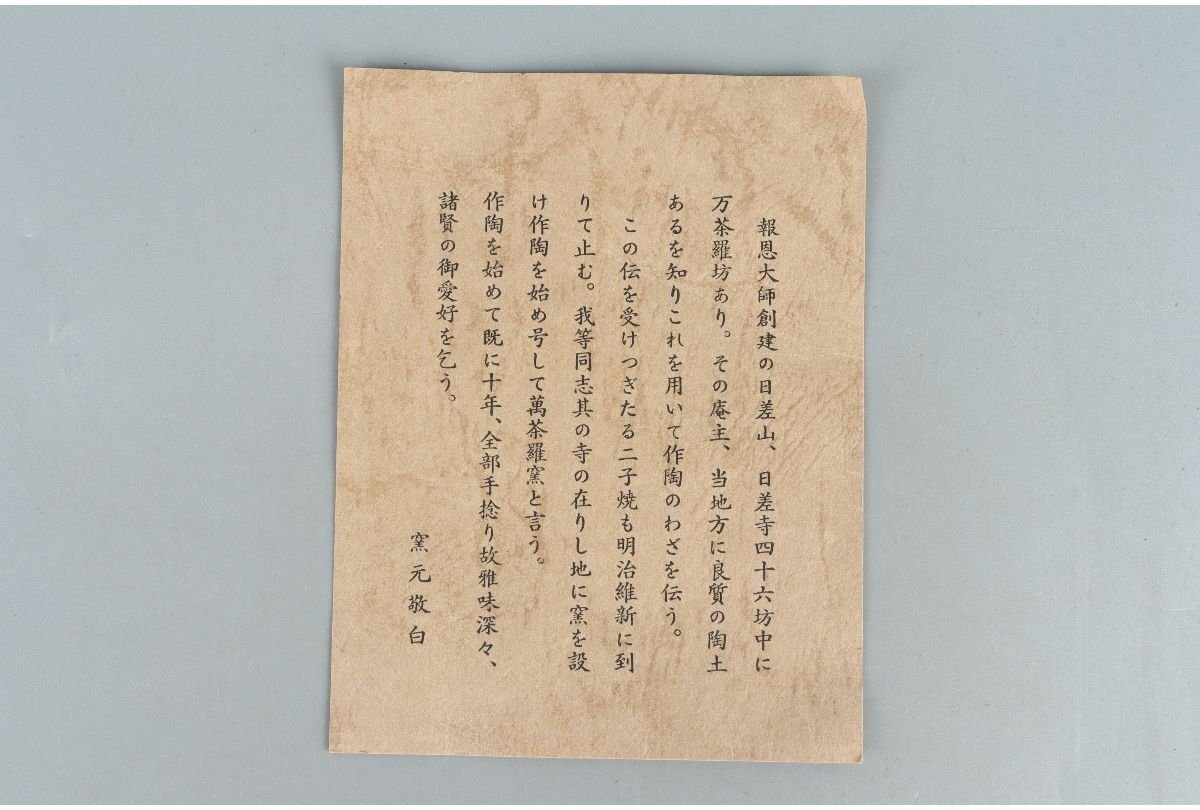 報恩大師創建の日差山、日差寺四十六坊中に
万茶羅坊あり。その庵主、当地方に良質の陶土
あるを知りこれを用いて作陶のわざを伝う。
この伝を受けつぎたる二子焼も明治維新に到
りて止む。我等同志其の寺の在りし地に窯を設
け作陶を始め号して萬茶羅窯と言う。
作陶を始めて既に十年、全部手捻り故雅味深々、
諸賢の御愛好を乞う。
窯元敬白